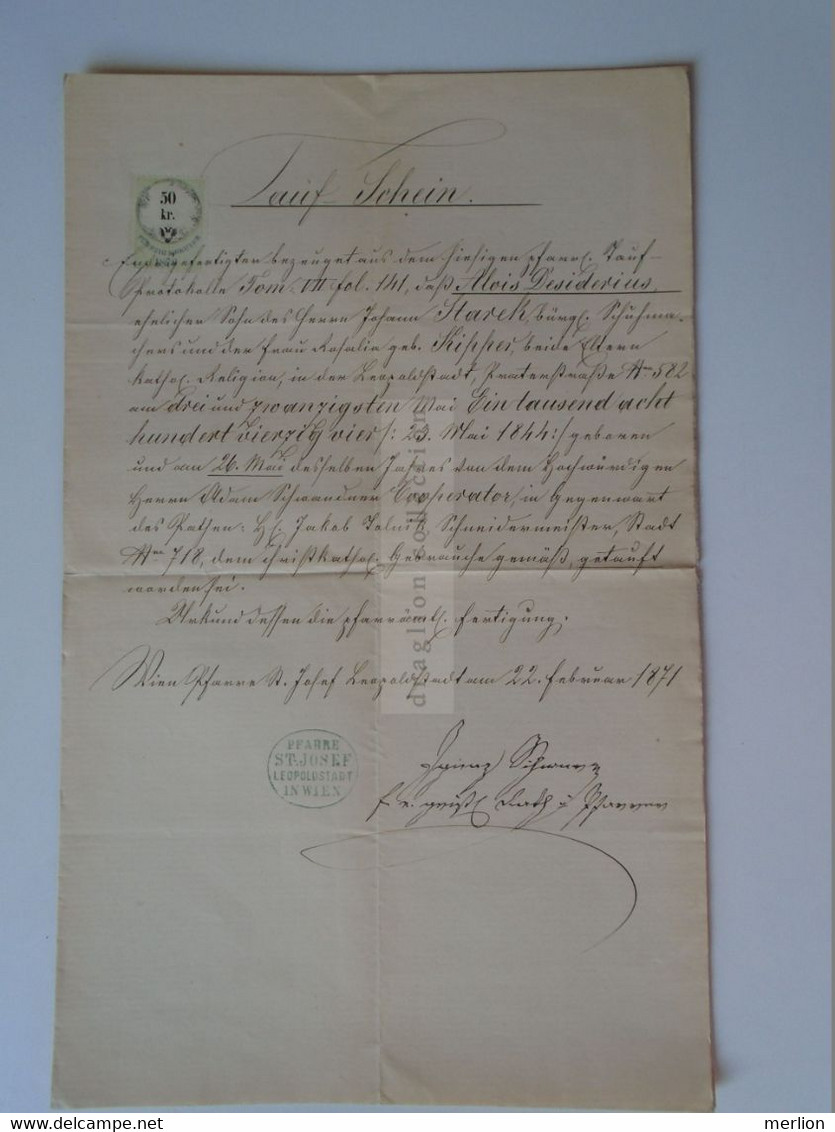 Tauf-Schein.
50
kr.
Endesgefertigter bezeuget aus dem hiesigen pfarrl. Tauf-
protokolle Tom. VII fol. 141, daß Alois Desiderius,
ehelicher Sohn des Herrn Johann Starek, bürgl. Schuhma-
chers und der Frau Rosalia geb. Kipper, beide Eltern
kathol. Religion, in der Leopoldstadt, Praterstraße Nro 582
am drei und zwanzigsten Mai Ein tausend acht
hundert vierzig vier /: 23. Mai 1844 :/ geboren
und am 26. Mai desselben Jahres von dem Hochwürdigen
Herrn Adam Schwandner Cooperator, in Gegenwart
des Pathen: H. Jakob Schneidermeister, Stadt
Nro 718, dem christkathol. Gebrauche gemäß, getauft
worden sei.
Urkund dessen die pfarrämtl. Fertigung.
Wien Pfarre St. Josef Leopoldstadt am 22. Februar 1871
PFARRE
ST. JOSEF
LEOPOLDSTADT
IN WIEN
geistl. Rath Pfarrer
darabanth collection
delcampe.net
merlion